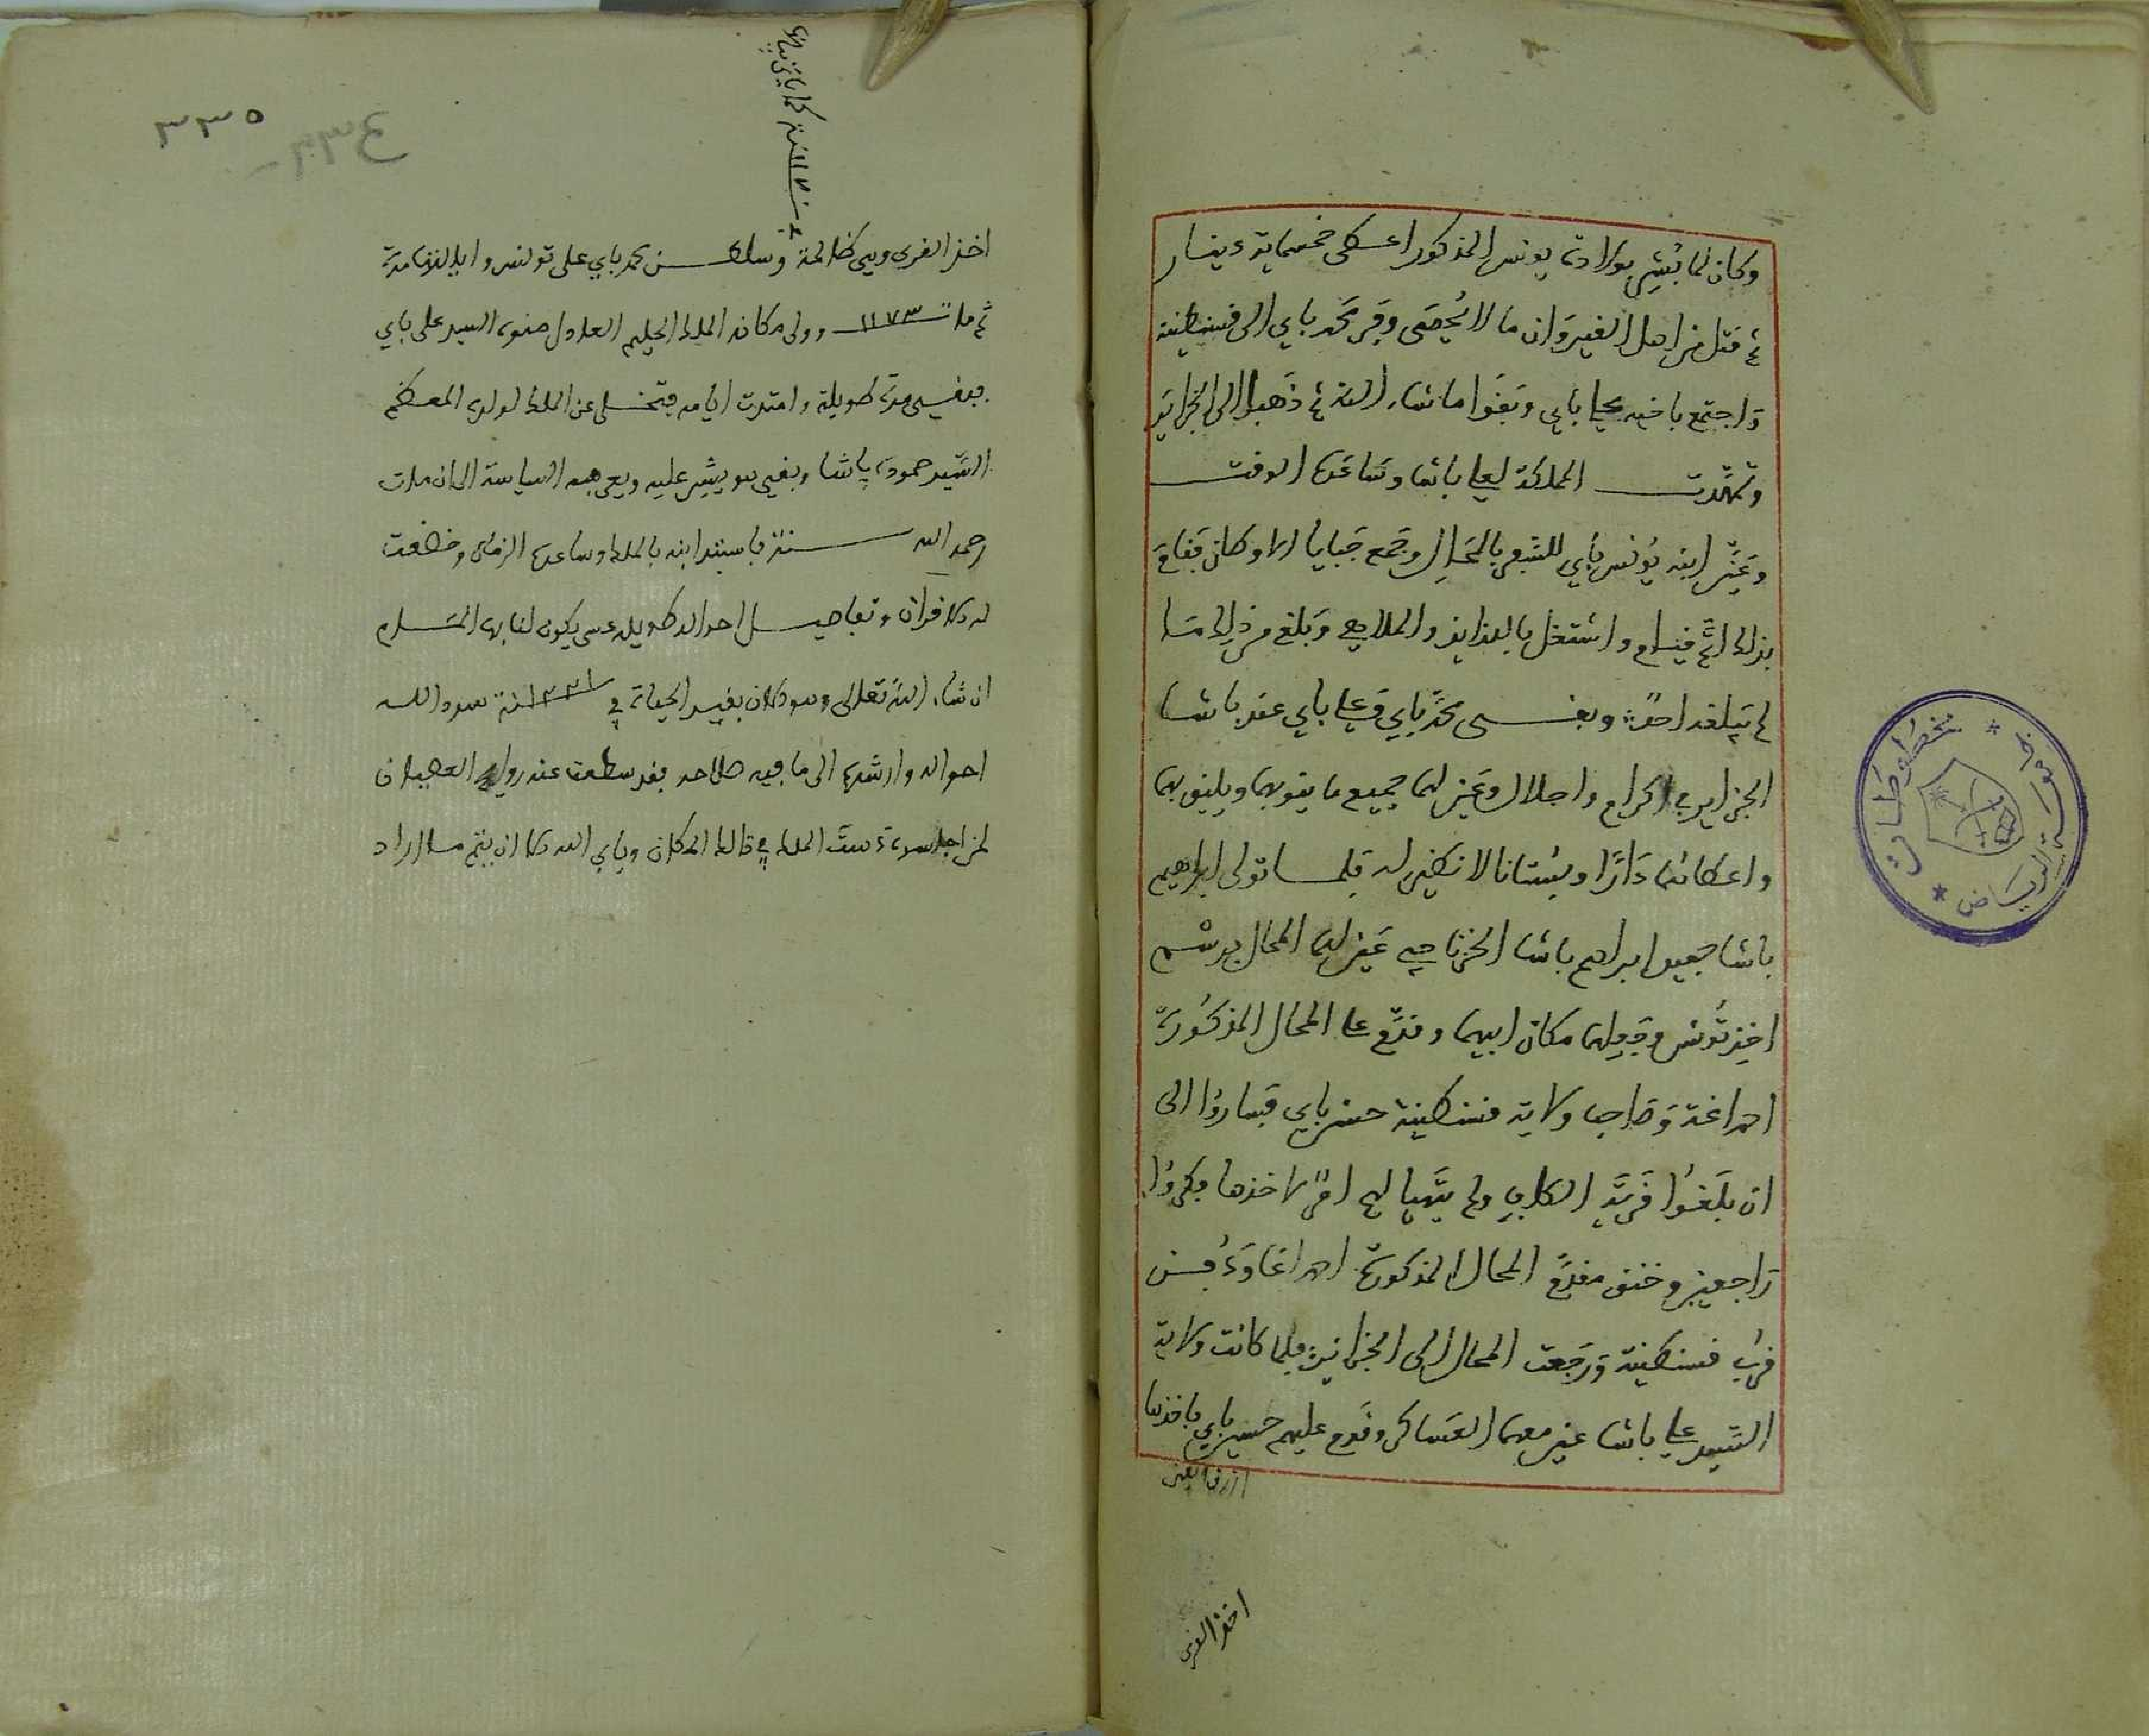 وكان لما بُشِّر بولادة يونس المذكور اعطى خمسماية دينار
ثم قتل من اهل القيروان ما لا يُحصَى وفر محمد باي الى قسنطينة
واجتمع باخيه علي باي وبقوا ما شاء الله ثم ذهبوا الى الجزاير
وتمهّدت المملكة لعلي باشا وساعده الوقت
وعيّن ابنه يُونس باي للسفر بالمحال وجمع جبايا لها وكان فقام
بذلك اتمَّ قيام واشتغل باللذايذ والملاهي وبلغ من ذلك ما
لم يبلغه احدٌ وبقى محمد باي وعلي باي عند باشا
الجزاير في اكرام واجلال وعين لهما جميع ما يقوتهما ويليق بهما
واعطاهما دارًا وبُستانا لا نظير له فلما تولى ابراهيم
باشا حفيد ابراهيم باشا الخزناجي عين لهما المحال برسم
اخذ تُونس وجعلهما مكان ابيهما وقدّم على المحال المذكورة
احمد اغة وصاحب ولاية قسنطينة حسن باي فساروا الى
ان بلغوا قرية الكاف ولم يتهيا لهم امر لاخذها فكروا
راجعين وخنق مقدّم المحال المذكورة احمد اغا ودُفن
قرب قسنطينة ورجعت المحال الى الجزاير فلما كانت ولاية
السّيد علي باشا عين معهما العساكر وقدم عليهم حسن باي فاخذها
اخذ القرى
سنة
اخذ القرى وهي ظالمة وسلطن محمد باي على تونس وايالاتها مدة
ثم مات ١١٧٣ وولى مكانه الملك الحليم العادل صنوه السيد علي باي
فبقى مدة طويلة وامتدت ايامه فتخلى عن الملك لولده المعظم
السّيد حمودة پاشا وبقى هو يشير عليه ويعرفه السياسة الى ان مات
رحمه الله سنة فاستبد ابنه بالملك وساعده الزمان وخضعت
له الاقران وتفاصيل احواله طويلة عسى يكون لنا بها المام
ان شاء الله تعالى وهو الان بقيد الحياة في ١٢٢١ سنة سدد الله
احواله وارشده الى ما فيه صلاحه فقد سطعت عنه روايح العصيان
لمن اجلسه دست الملك في ذلك المكان ويابى الله الا ان يتم ما اراد
٣٣٥